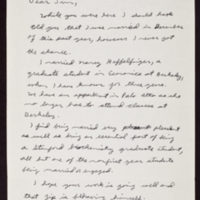 Dear Jim,
While you were here I should have
told you that I was married in December
of this past year, however I never got
the chance.
I married Nancy Heffelfinger, a
graduate student in Genetics at Berkeley,
whom I have known for three years.
We have an apartment in Palo Alto as she
no longer has to attend classes at
Berkeley.
I find being married very pleasant
as well as being an essential part of being
a Stanford biochemistry graduate student,
all but one of the nonfirst year students
being married or engaged.
I hope your work is going well and
that Zip is behaving himself.